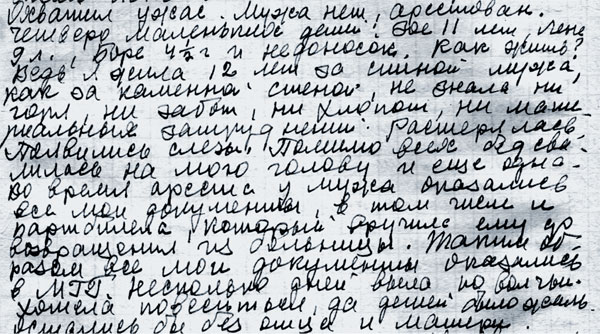 Охватил ужас. Мужа нет, арестован.
Четверо маленьких детей: Зое 11 лет, Лене
9 л., Боре 4½ г и недоносок. Как жить?
Ведь я жила 12 лет за спиной мужа,
как за каменной стеной, не знала ни
горя, ни забот, ни хлопот, ни мате-
риальных затруднений. Растерялась.
Появились слезы. Помимо всех бед сва-
лилась на мою голову и еще одна-
во время ареста у мужа оказались
все мои документы, в том числе и
партбилет, который вручила ему до
возвращения из больницы. Таким об-
разом все мои документы оказались
в МГБ. Несколько дней выла по волчьи.
Хотела повеситься, да детей было жаль.
остались бы без отца и матери.